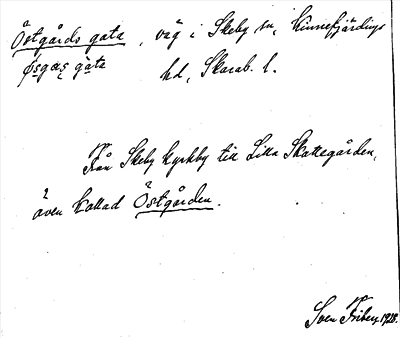 Östgårds gata, väg i Skeby sn, Kinnefjärdings
hd, Skarab. l.
Från Skeby kyrkby till Lilla Skattegården,
även kallad Östgården.
Sven Friberg 1928.